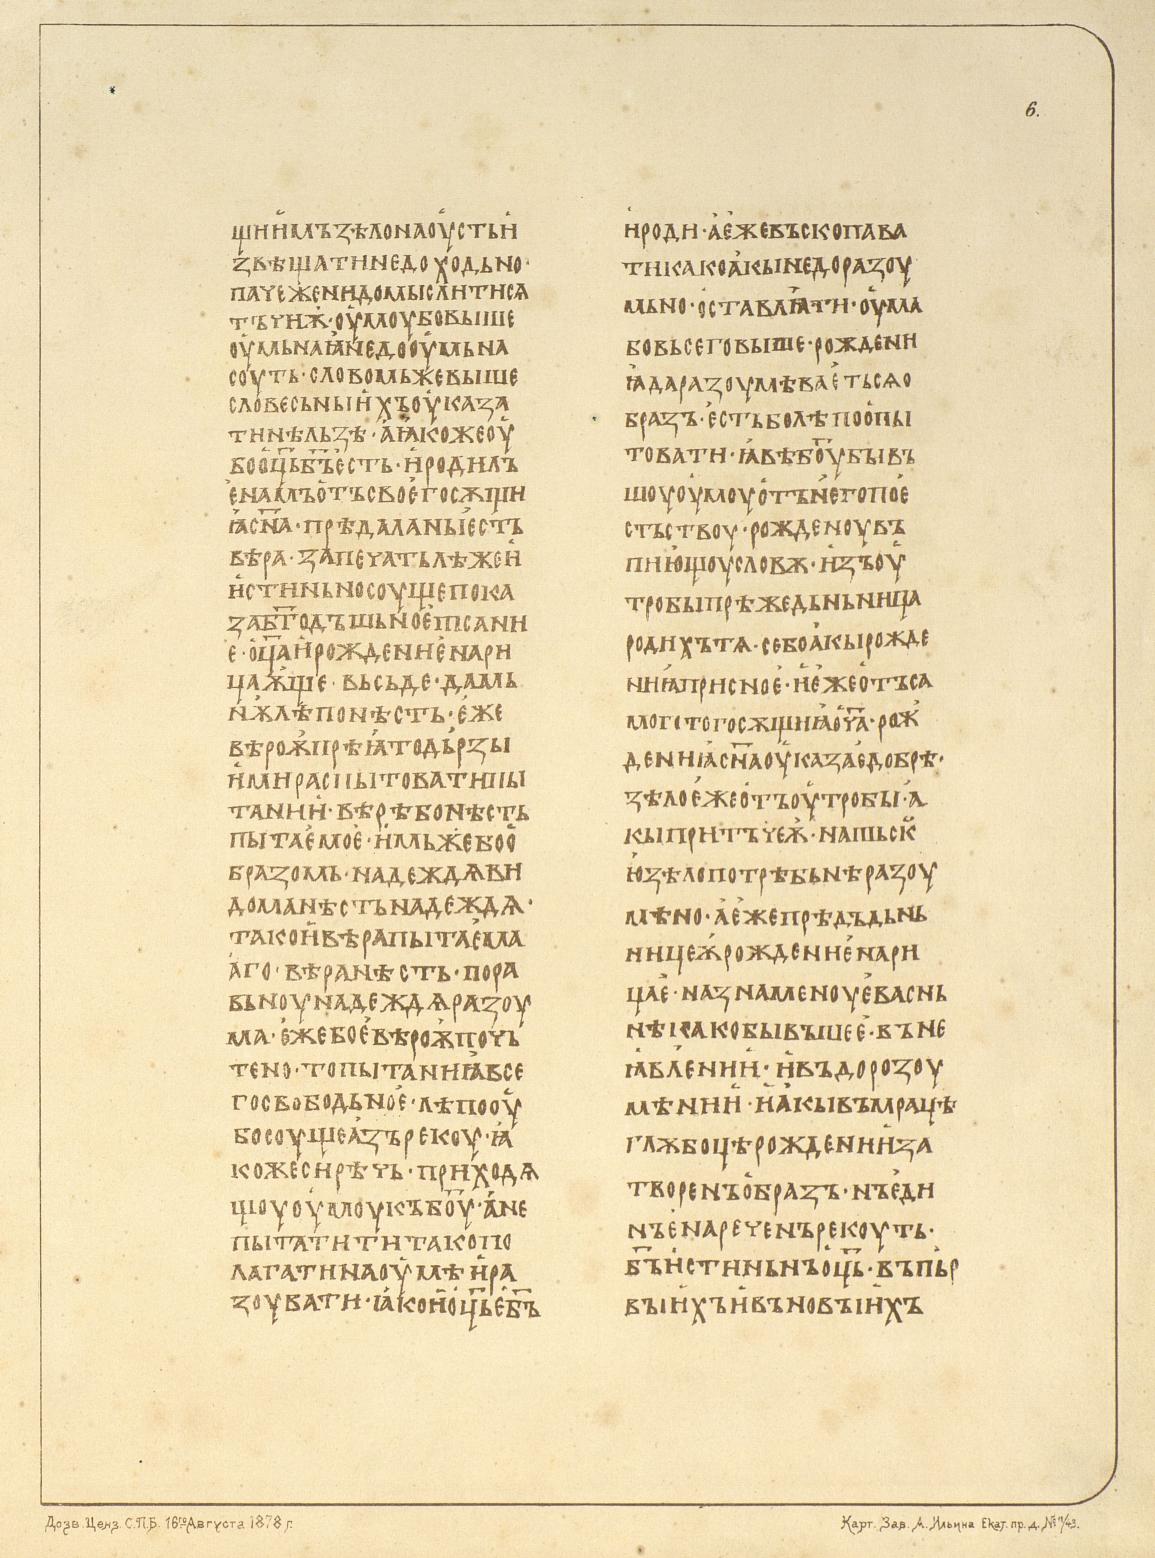 6.
шиимъꙁѣлонаоустьи
ꙁвѣшатинедоходьно·
пачежеꙁнидомыслитисѧ
тъчиѭ·оумоубовыше
оумьнаꙗнедооумьна
соуть·словомьжевыше
словесьныихъоукаꙁа
тинѣльꙁѣ·аꙗкожеоу
боо҃цьб҃ъесть·иродилъ
енамъотъсвоегосѫщи
ꙗс҃на·прѣдаланыестъ
вѣра·ꙁапечатьлѣжеи
истиньносоущепока
ꙁаб҃годъшьноепсани
е·о҃цаирождениенари
цаѭще·вьсьде·дамь
нѫлѣпонѣсть·еже
вѣроѭпрѣꙗтодьрꙁы
имираспытоватипы
тании·вѣрѣбонѣсть
пытаемое·имьжебоо
браꙁомь·надеждѧви
доманѣстънадеждѧ·
такоивѣрапытаема
аго·вѣранѣсть·пора
вьноунадеждѧраꙁоу
ма·ежебоевѣроѭпочь
тено·топытаниꙗвсе
госвободьное·лѣпооу
босоущеаꙁърекоу·ꙗ
кожесирѣчь·приходѧ
щоуоумоукъб҃оу·ане
пытатититакопо
лагатинаоумѣира
ꙁоувати·ꙗкоио҃цьеб҃ъ
ироди·аежевъскопава
тикакоакынедораꙁоу
мьно·оставлꙗти·оума
бовьсеговыше·рождени
ꙗдараꙁоумѣваетьсѧо
браꙁъ·естьболѣпоопы
товати·ꙗвѣб҃оубывъ
шоуоумоуотънегопое
стьствоу·рожденоувъ
пиющоусловѫ·иꙁъоу
тробыпрѣжедьньница
родихътѧ·себоакырожде
ниꙗприсное·иежеотъса
могітогосѫщиꙗо҃ча·рож
дениꙗс҃наоукаꙁаедобрѣ·
ꙁѣлоежеотъоутробы·а
кыпритъчеѭ·нашьск
юꙁѣлопотрѣбьнѣраꙁоу
мѣно·аежепрѣдъдьнь
ницеѭрождениенари
цае·наꙁнаменоуеваснь
нѣкакобывъшее·въне
ꙗвлении·ивъдороꙁоу
мѣнии·иакывъмрацѣ
глѫбоцѣрождениииꙁа
творенъобраꙁъ·нъеди
нъенареченърекоуть·
б҃ъистиньнъо҃ць·въпьр
выихъивъновыихъ
Дозв. Ценз. С.П.Б. 16го Августа 1878 г.
Карт. Зав. А. Ильина Екат. пр. д. № 11/43.